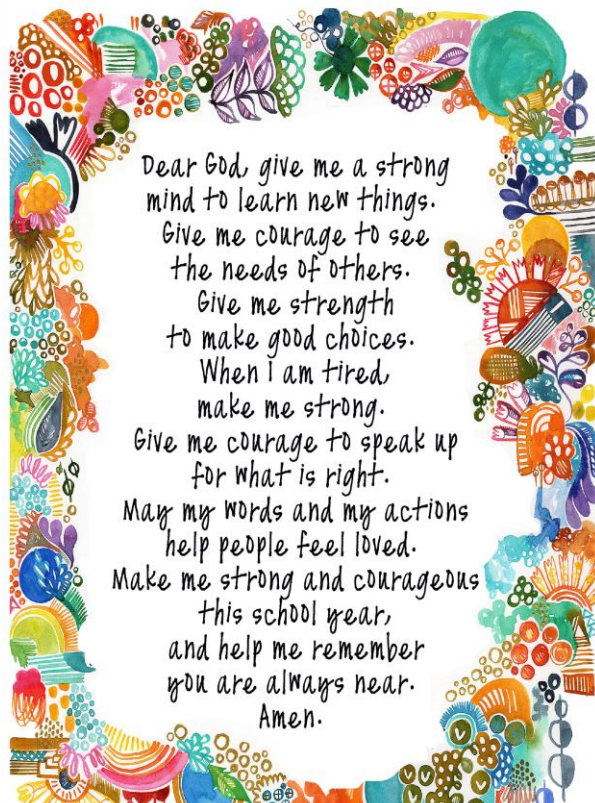 Dear God, give me a strong
mind to learn new things.
Give me courage to see
the needs of others.
Give me strength
to make good choices.
When I am tired,
make me strong.
Give me courage to speak up
for what is right.
May my words and my actions
help people feel loved.
Make me strong and courageous
this school year,
and help me remember
you are always near.
Amen.